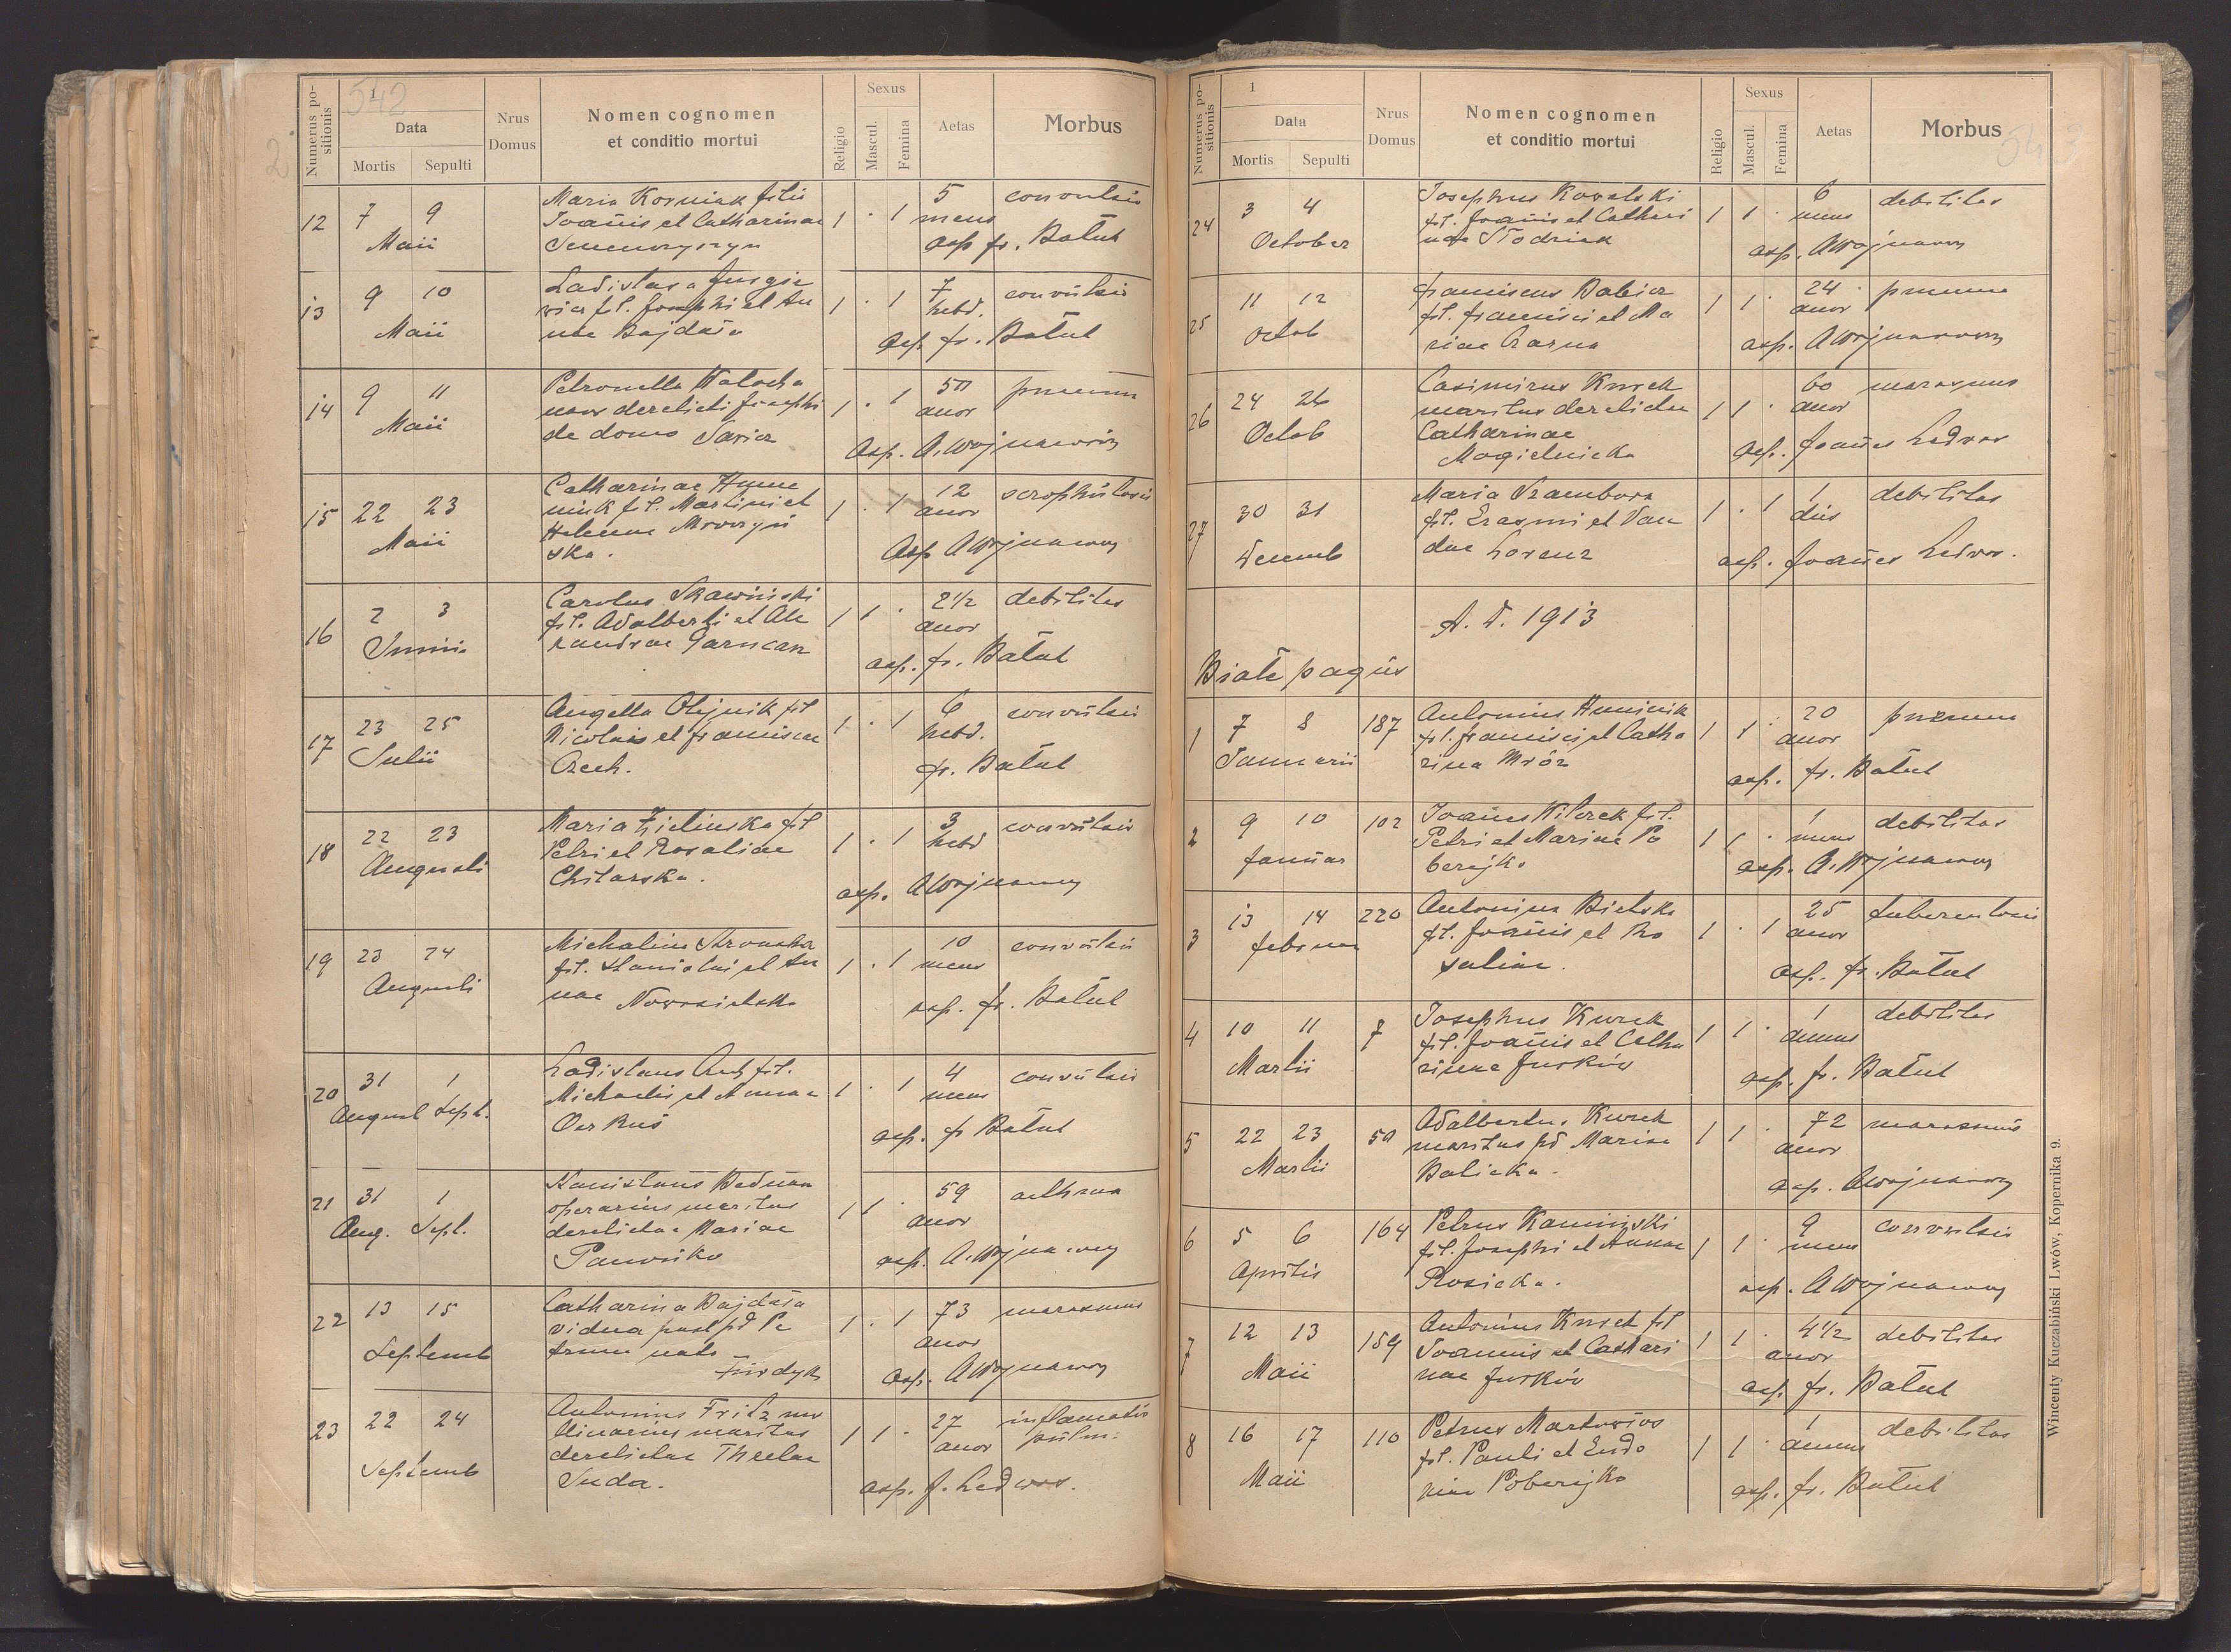 542
Numerus positionis
1
Data
Mortis Sepulti
Nrus Domus
Nomen cognomen
et conditio mortui
Religio
Sexus
Mascul. Femina
Aetas
Morbus
12 7 9 Maria Korniak filia 1 · 1 5 convulsio
Maii Joannis et Catharinae mens
asp. fr. Batut
13 9 10 Ladislava
Maii fil. Josephi et An 1 · 1 7 convulsio
nae Bajdała hebd.
asp. fr. Batut
14 9 11 Petronella
Maii derelicti Josephi 1 · 1 50 pneum
de domo anor
asp. A. Wojnarowicz
15 22 23 Catharinae Hume
Maii niuk fil. Martini et 1 · 1 12 scrophulosis
Helenae anor
ska.
asp. A Wojnarowicz
16 2 3 Carolus Skawiński
Junii fil. Adalberti et Ale 1 1 · 2½ debilitas
xandrae Garncarz anor
asp. fr. Batut
17 23 25 Angella Olejnik fil
Julii Nicolais et Franciscae 1 · 1 6 convulsio
Czech. hebd.
fr. Batut
18 22 23 Maria Zielinska fil
Augusti Petri et Rosaliae 1 · 1 3 convulsio
Chilarska. hebd
asp. A Wojnarowicz
19 23 24 Michalina
Augusti fil. Stanislai et An 1 · 1 10 convulsio
nae Nowosielska mens
asp. fr. Batut
20 31 1 Ladislaus fil.
August Sept. Michaelis et Annae 1 · 1 4 convulsio
mens
asp. fr Batut
21 31 1 Stanislaus Bednarz
Aug. Sept. operarius maritus 1 1 · 59 asthma
derelictae Mariae anor
asp. A. Wojnarowicz
22 13 15 Catharina Bajdała
Septemb vidua post pd Pe 1 · 1 73 marasmus
trum nata anor
Furdyk
asp. A Wojnarowicz
23 22 24 Antonius Fritz mo
Septemb linarius maritus 1 1 · 27 inflamatio
derelictae Theclae anor pulm.
Duda.
asp. J. Ledwos.
Numerus positionis
1
Data
Mortis Sepulti
Nrus Domus
Nomen cognomen
et conditio mortui
Religio
Sexus
Mascul. Femina
Aetas
Morbus
24 3 4 Josephus Kowalski
October fil. Joannis et Cathari 1 1 · 6 debilitas
nae mens
asp. A Wojnarowicz
25 11 12 Franciscus Babicz
Octob fil. Francisci et Ma 1 1 · 24 pneum
riae Czarna anor
asp. A Wojnarowicz
26 24 26 Casimirus Kurek
Octob maritus derelictae 1 1 · 60 marasmus
Catharinae anor
Mogielnicka
asp. Joannes Ledwos
27 30 31 Maria Szambora
Decemb fil. Erasmi et Van 1 · 1 1 debilitas
dae Lorenz dies
asp. Joannes Ledwos.
A. D. 1913
Białe pagus
1 7 8 187 Antonius Huminik
Januarii fil. Francisci et Catha 1 1 · 20 pneum
rina Mróz anor
asp. fr. Batut
2 9 10 102 Joannes Wilczek fil.
Januar Petri et Mariae Po 1 1 · 1 debilitas
berejko mens
asp. A. Wojnarowicz
3 13 14 220 Antonina Bielska
februar fil. Joannis et Ro 1 · 1 25 tuberculosis
saliae. anor
asp. fr. Batut
4 10 11 7 Josephus Kurek
Martii fil. Joannis et Catha 1 1 · 1 debilitas
rinae Jurków annus
asp. fr. Batut
5 22 23 50 Adalbertus Kurek
Martii maritus pd Mariae 1 1 · 72 marasmus
Balicka. anor
asp. A Wojnarowicz
6 5 6 164 Petrus Kaminski
Aprilis fil. Josephi et Annae 1 1 · 9 convulsio
Rosicka. mens
asp. A Wojnarowicz
7 12 13 159 Antonius Kurek fil
Maii Joannis et Cathari 1 1 · 4½ debilitas
nae Jurków anor
asp. fr. Batut
8 16 17 110 Petrus Martowicz
Maii fil. Pauli et Eudo 1 1 · 1 debilitas
xiae Poberejko annus
asp. fr. Batut
Wincenty Kuczabiński Lwów, Kopernika 9.